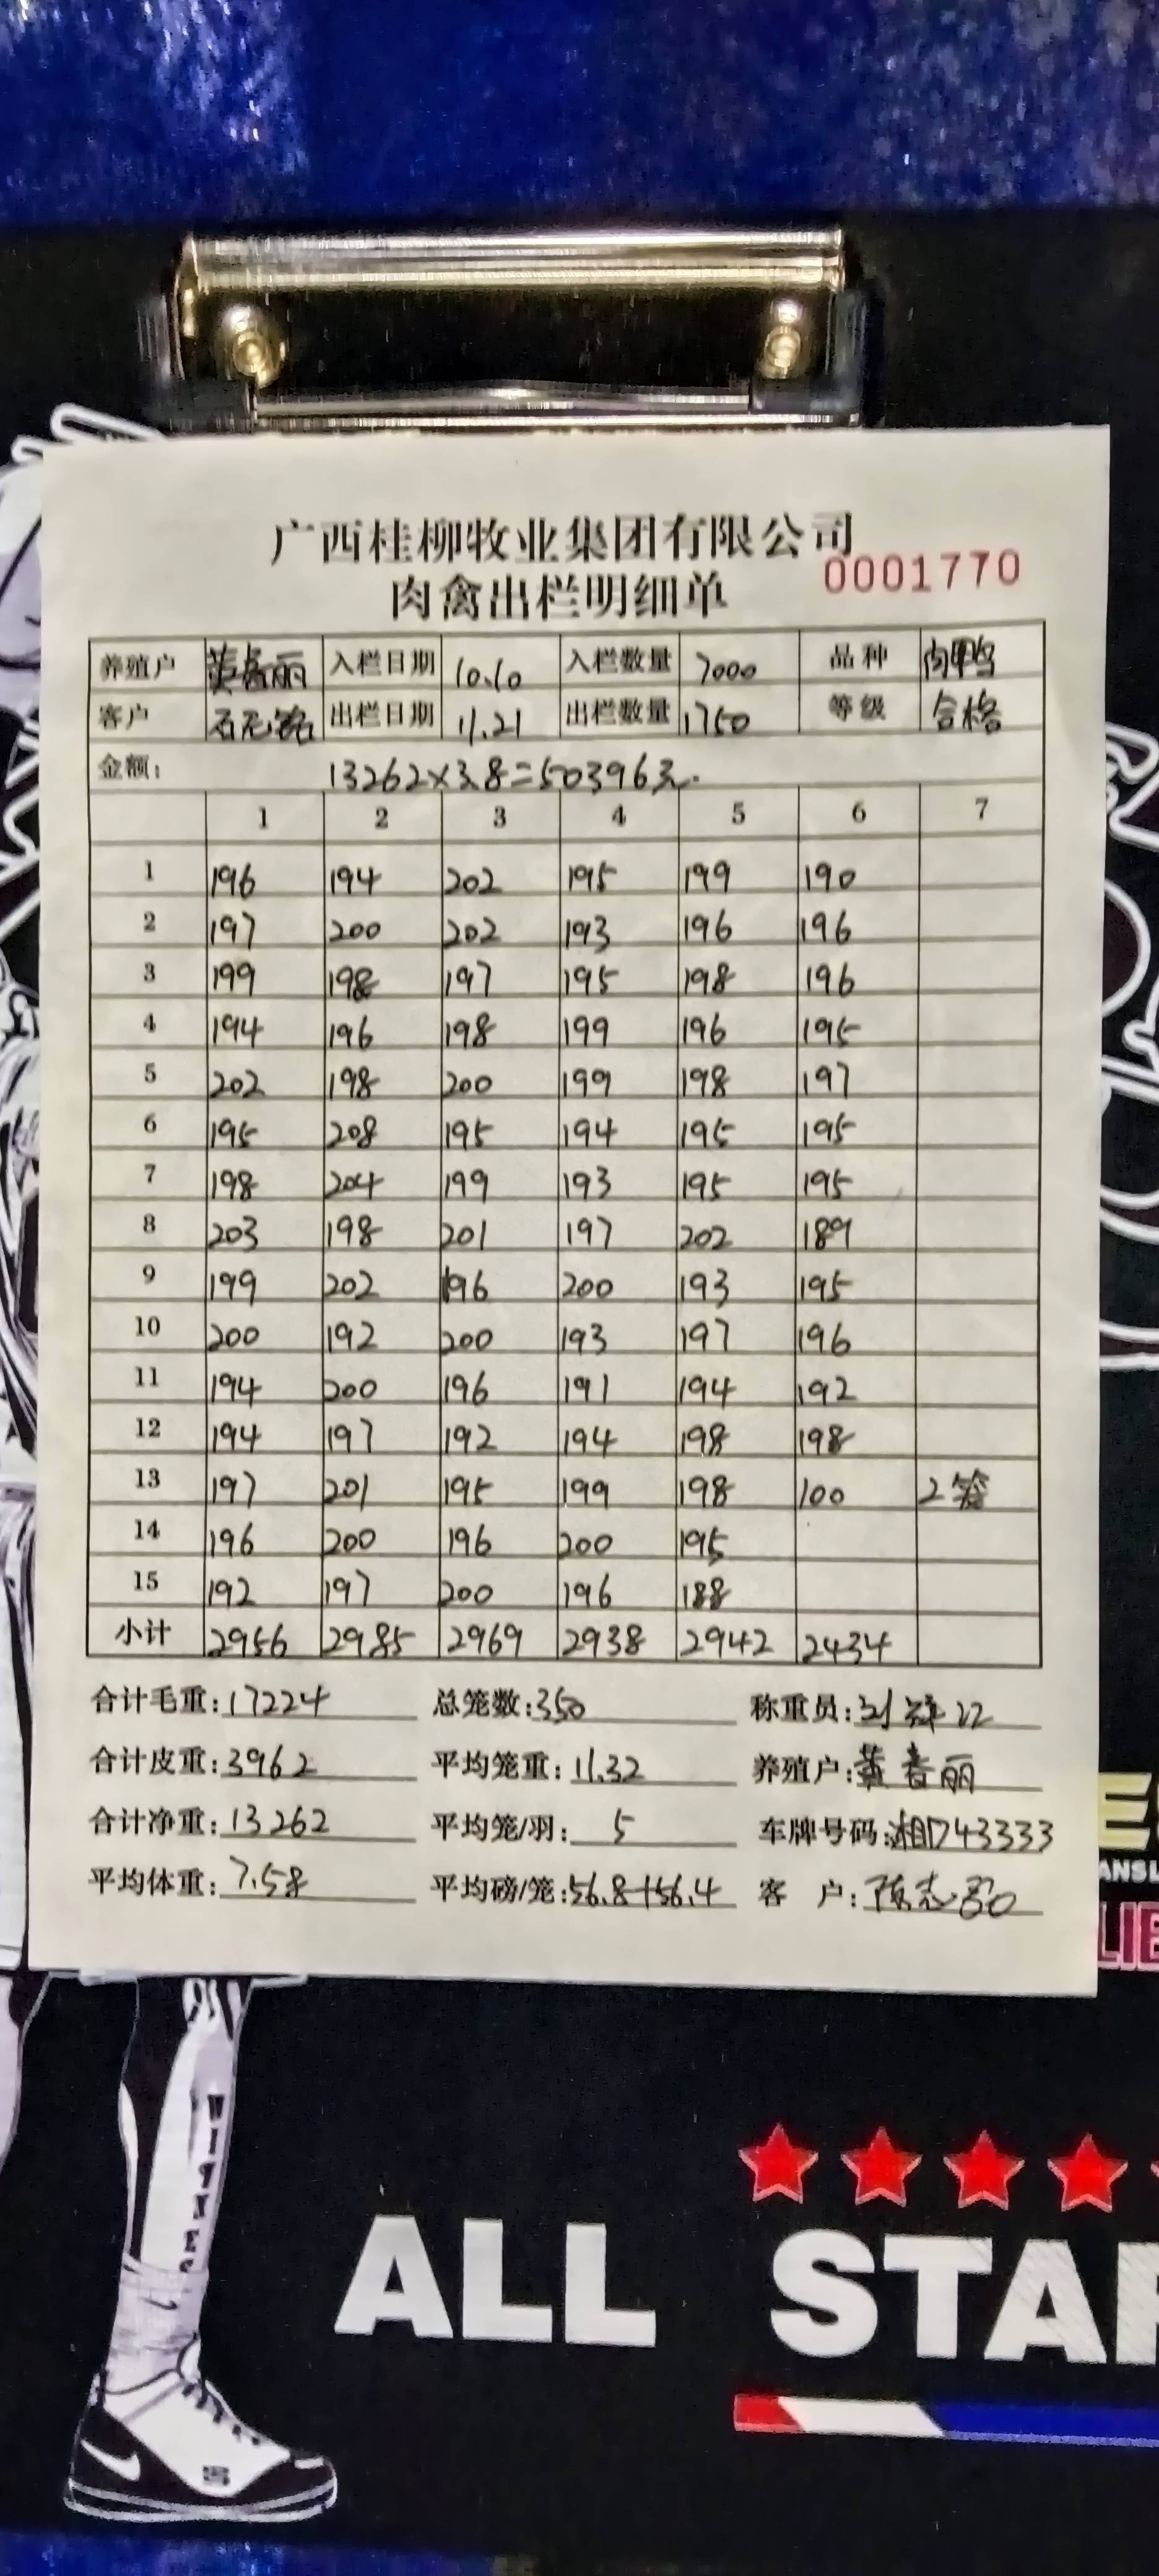 广西桂柳牧业集团有限公司
肉禽出栏明细单 0001770
养殖户 黄春丽 入栏日期 10.10 入栏数量 7000 品种 肉鸭
客户 出栏日期 11.21 出栏数量 1750 等级 合格
金额: 13262×3.8=50396元.
1 2 3 4 5 6 7
1 196 194 202 195 199 190
2 197 200 202 193 196 196
3 199 198 197 195 198 196
4 194 196 198 199 196 195
5 202 198 200 199 198 197
6 195 208 195 194 195 195
7 198 204 199 193 195 195
8 203 198 201 197 202 189
9 199 202 196 200 193 195
10 200 192 200 193 197 196
11 194 200 196 191 194 192
12 194 197 192 194 198 198
13 197 201 195 199 198 100 2笼
14 196 200 196 200 195
15 192 197 200 196 188
小计 2956 2985 2969 2938 2942 2434
合计毛重:17224 总笼数:350 称重员:
合计皮重:3962 平均笼重:11.32 养殖户:黄春丽
合计净重:13262 平均笼/羽:5 车牌号码:湘D43333
平均体重:7.58 平均磅/笼:56.8+56.4 客户:陈志
ALL STAR